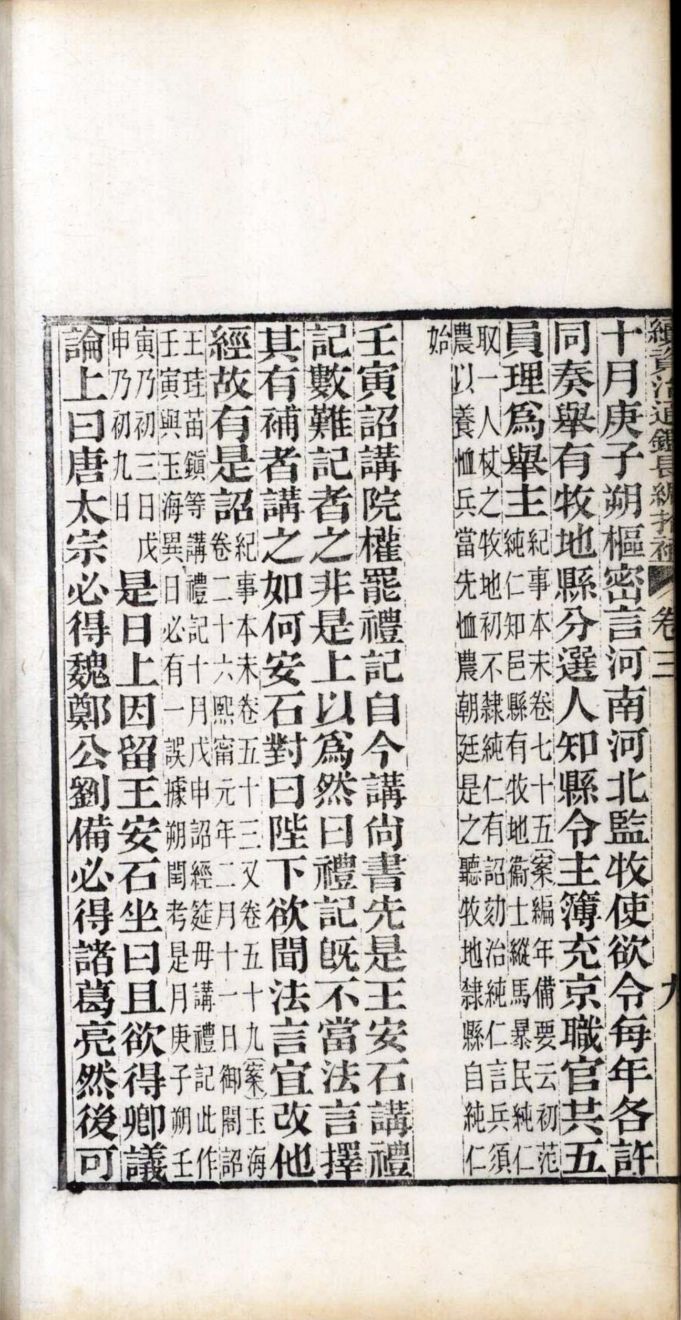 續資治通鑑長編拾補 卷三 九
十月庚子朔樞密言河南河北監牧使欲令每年各許
同奏舉有牧地縣分選人知縣令主簿充京職官共五
員理爲舉主紀事本末卷七十五案編年備要云初范
純仁知邑縣有牧地衞士縱馬暴民純仁
取一人杖之牧地初不隸純仁有詔劾治純仁言兵須
農以養恤兵當先恤農朝廷是之聽牧地隸縣自純仁
始
壬寅詔講院權罷禮記自今講尙書先是王安石講禮
記數難記者之非是上以爲然曰禮記旣不當法言擇
其有補者講之如何安石對曰陛下欲聞法言宜改他
經故有是詔紀事本末卷五十三又卷五十九案玉海
卷二十六熙甯元年二月十一日御閣詔
王珪苗鎭等講禮記十月戊申詔經筵毋講禮記此作
壬寅與玉海異日必有一誤據朔閏考是月庚子朔壬
寅乃初三日戊
申乃初九日
是日上因留王安石坐曰且欲得卿議
論上曰唐太宗必得魏鄭公劉備必得諸葛亮然後可